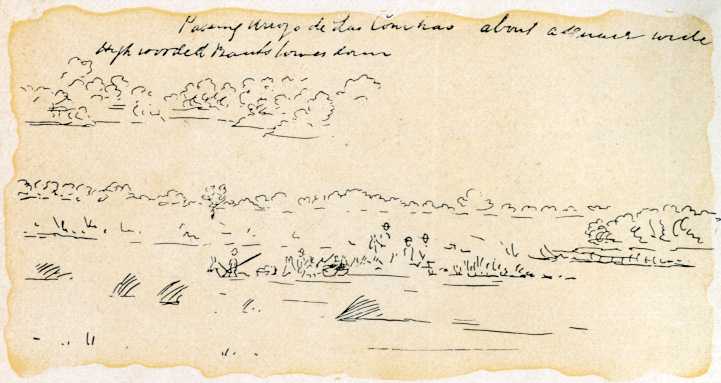 Passing Arroyo de Las Conchas about a [] wide
High wooded Banks lower down